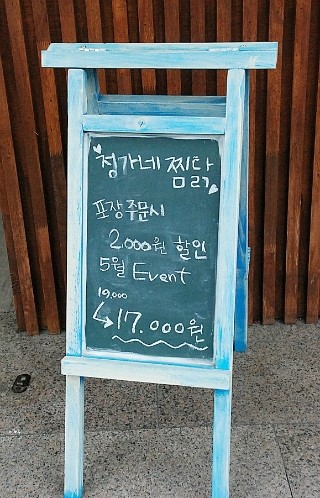 정가네 찜닭
포장 주문시
2.000원 할인
5월 Event
19,000
17.000원